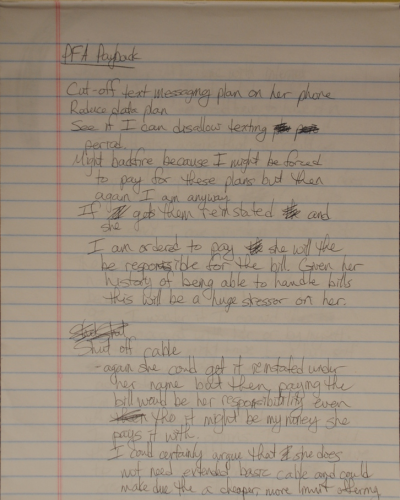 PFA Payback
Cut-off text messaging plan on her phone
Reduce data plan
See if I can disallow texting
period.
Might backfire because I might be forced
to pay for these plans but then
again I am anyway.
If she gets them reinstated and
I am ordered to pay she will the
be responsible for the bill. Given her
history of being able to handle bills
this will be a huge stressor on her.
Shut off cable
-again she could get it reinstated under
her name but then paying the
bill would be her responsibility even
tho it might be my money she
pays it with.
I could certainly argue that she does
not need extended basic cable and could
make due the a cheaper more limit offering